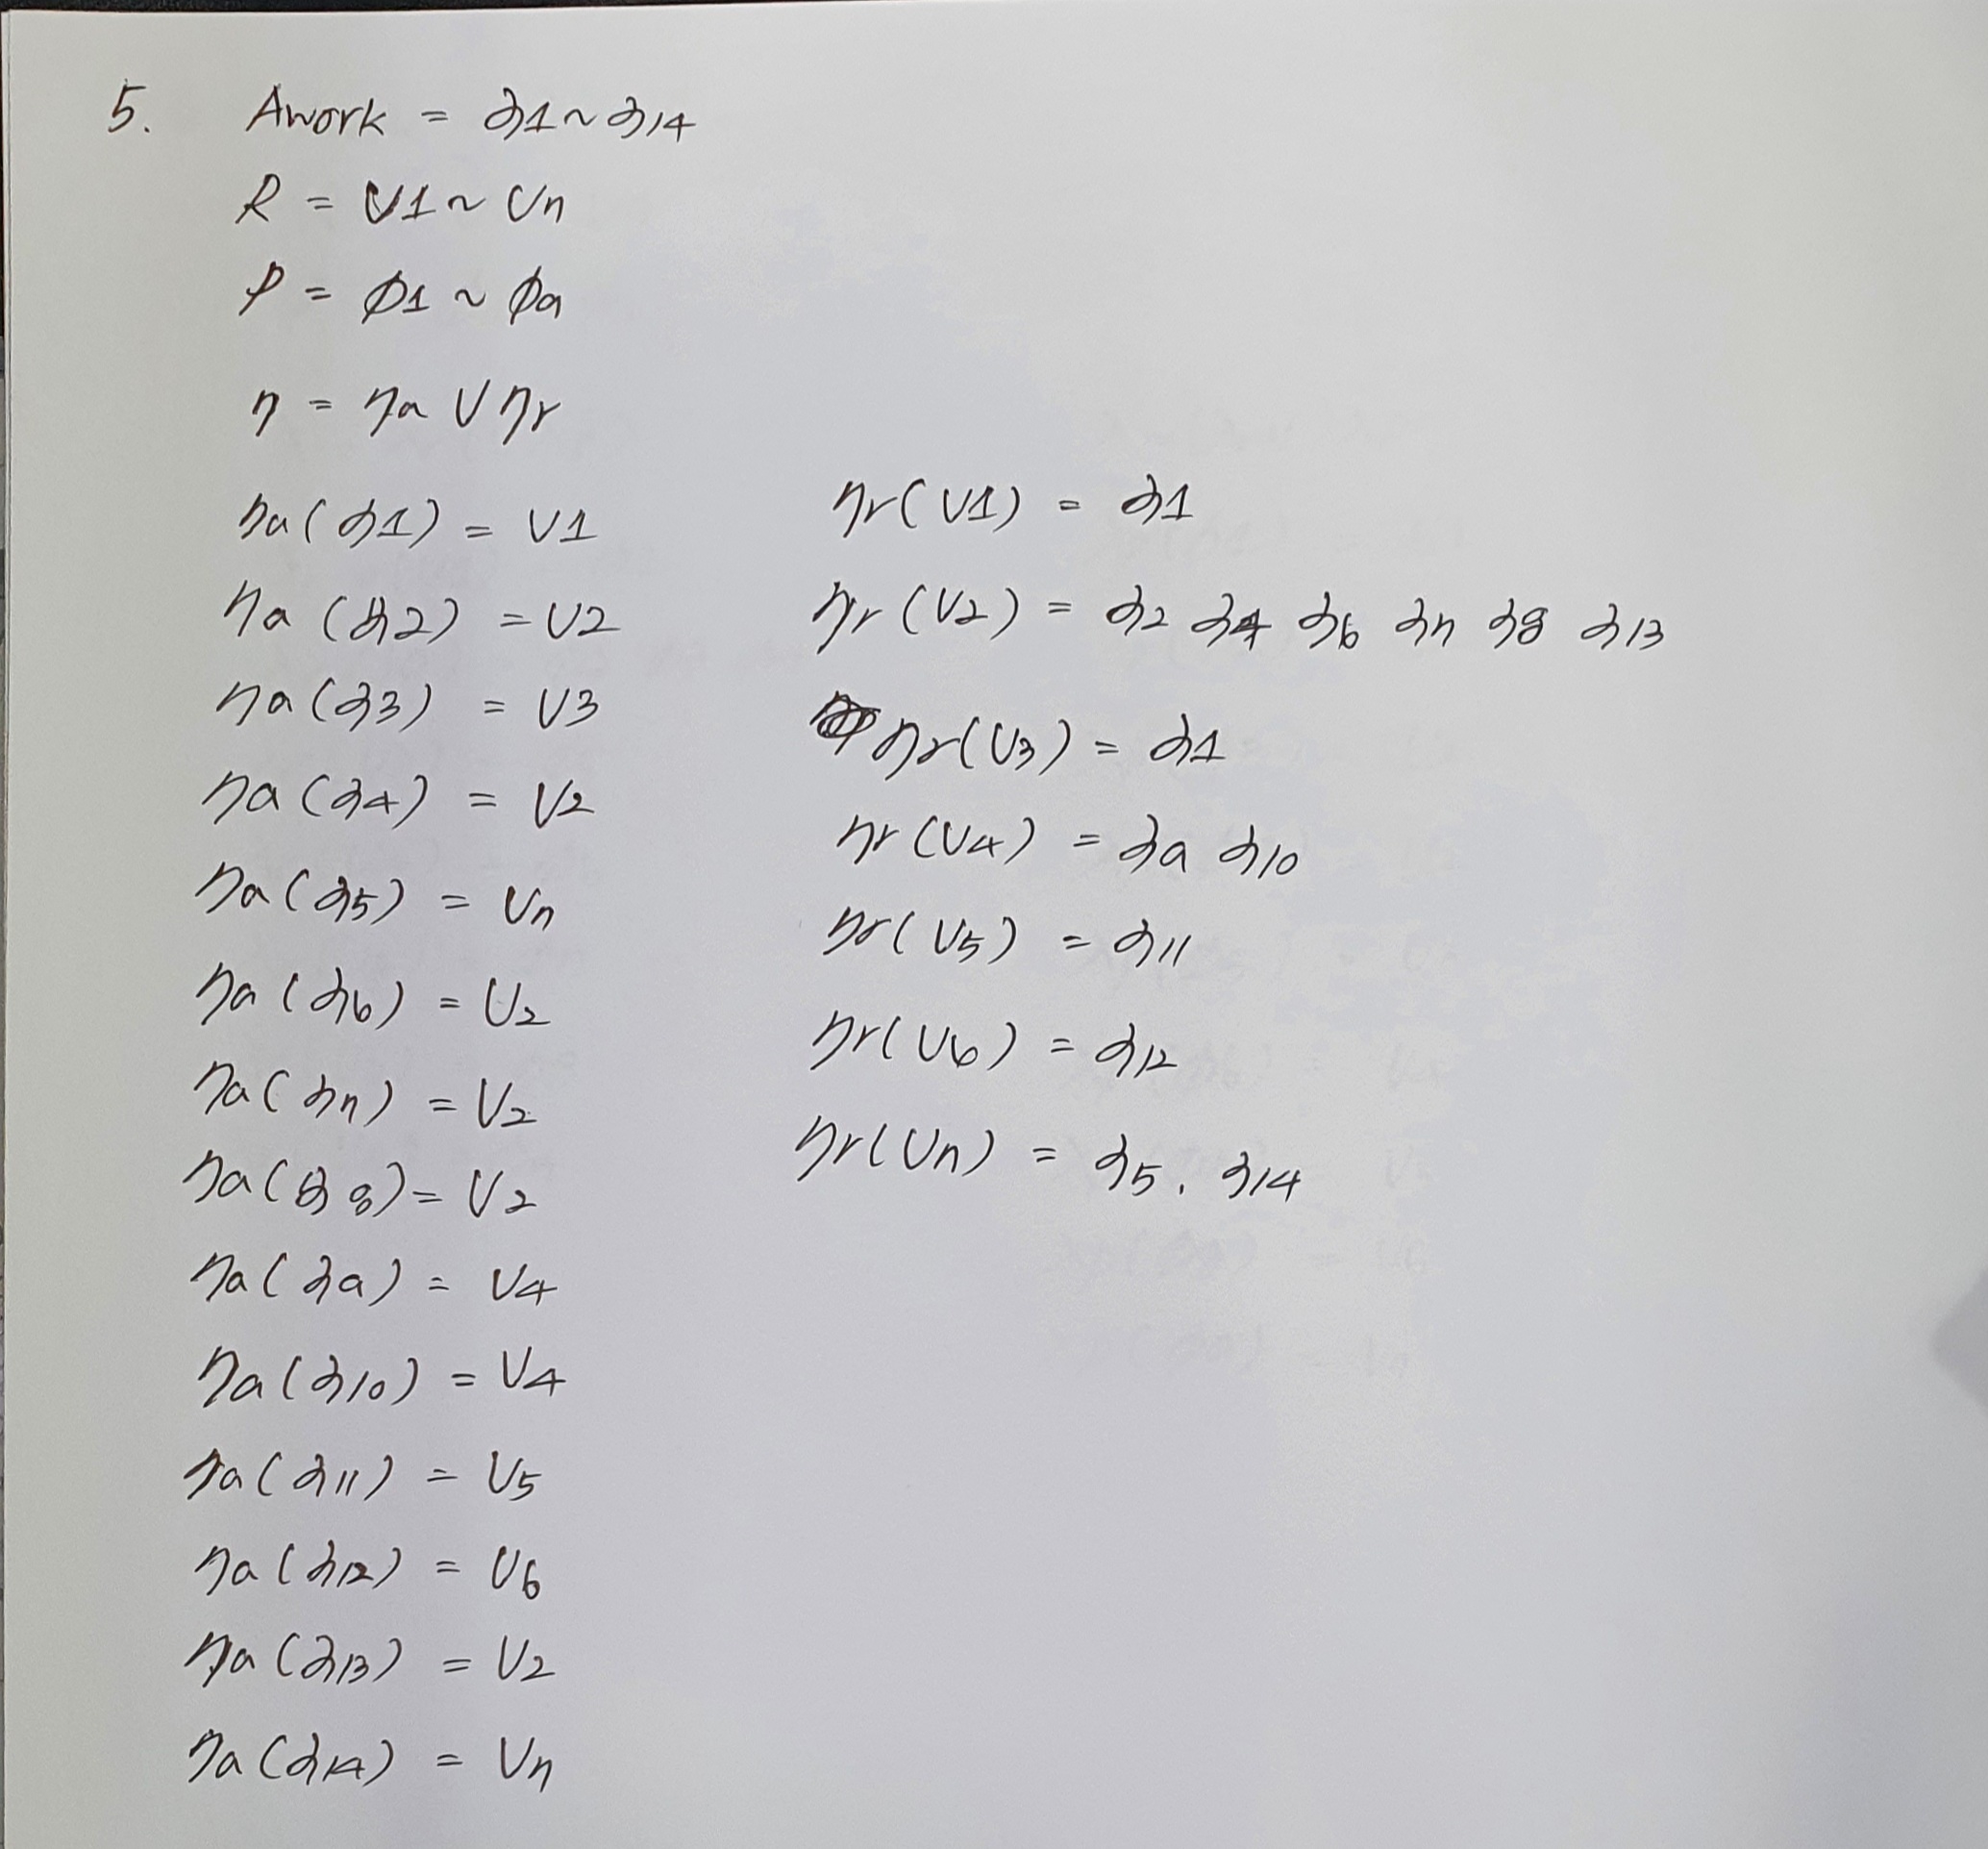 5. Awork = ∂1 ~ ∂14
R = V1 ~ V7
P = ϕ1 ~ ϕ9
η = ηa ∪ ηr
ηa(∂1) = V1
ηa(∂2) = V2
ηa(∂3) = V3
ηa(∂4) = V2
ηa(∂5) = V7
ηa(∂6) = V2
ηa(∂7) = V2
ηa(∂8) = V2
ηa(∂9) = V4
ηa(∂10) = V4
ηa(∂11) = V5
ηa(∂12) = V6
ηa(∂13) = V2
ηa(∂14) = V7
ηr(V1) = ∂1
ηr(V2) = ∂2 ∂4 ∂6 ∂7 ∂8 ∂13
ηr(V3) = ∂1
ηr(V4) = ∂9 ∂10
ηr(V5) = ∂11
ηr(V6) = ∂12
ηr(V7) = ∂5, ∂14